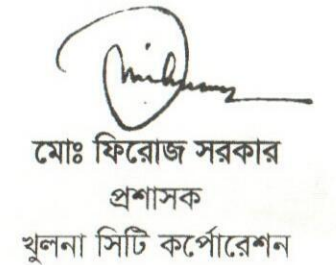 মোঃ ফিরোজ সরকার
প্রশাসক
খুলনা সিটি কর্পোরেশন